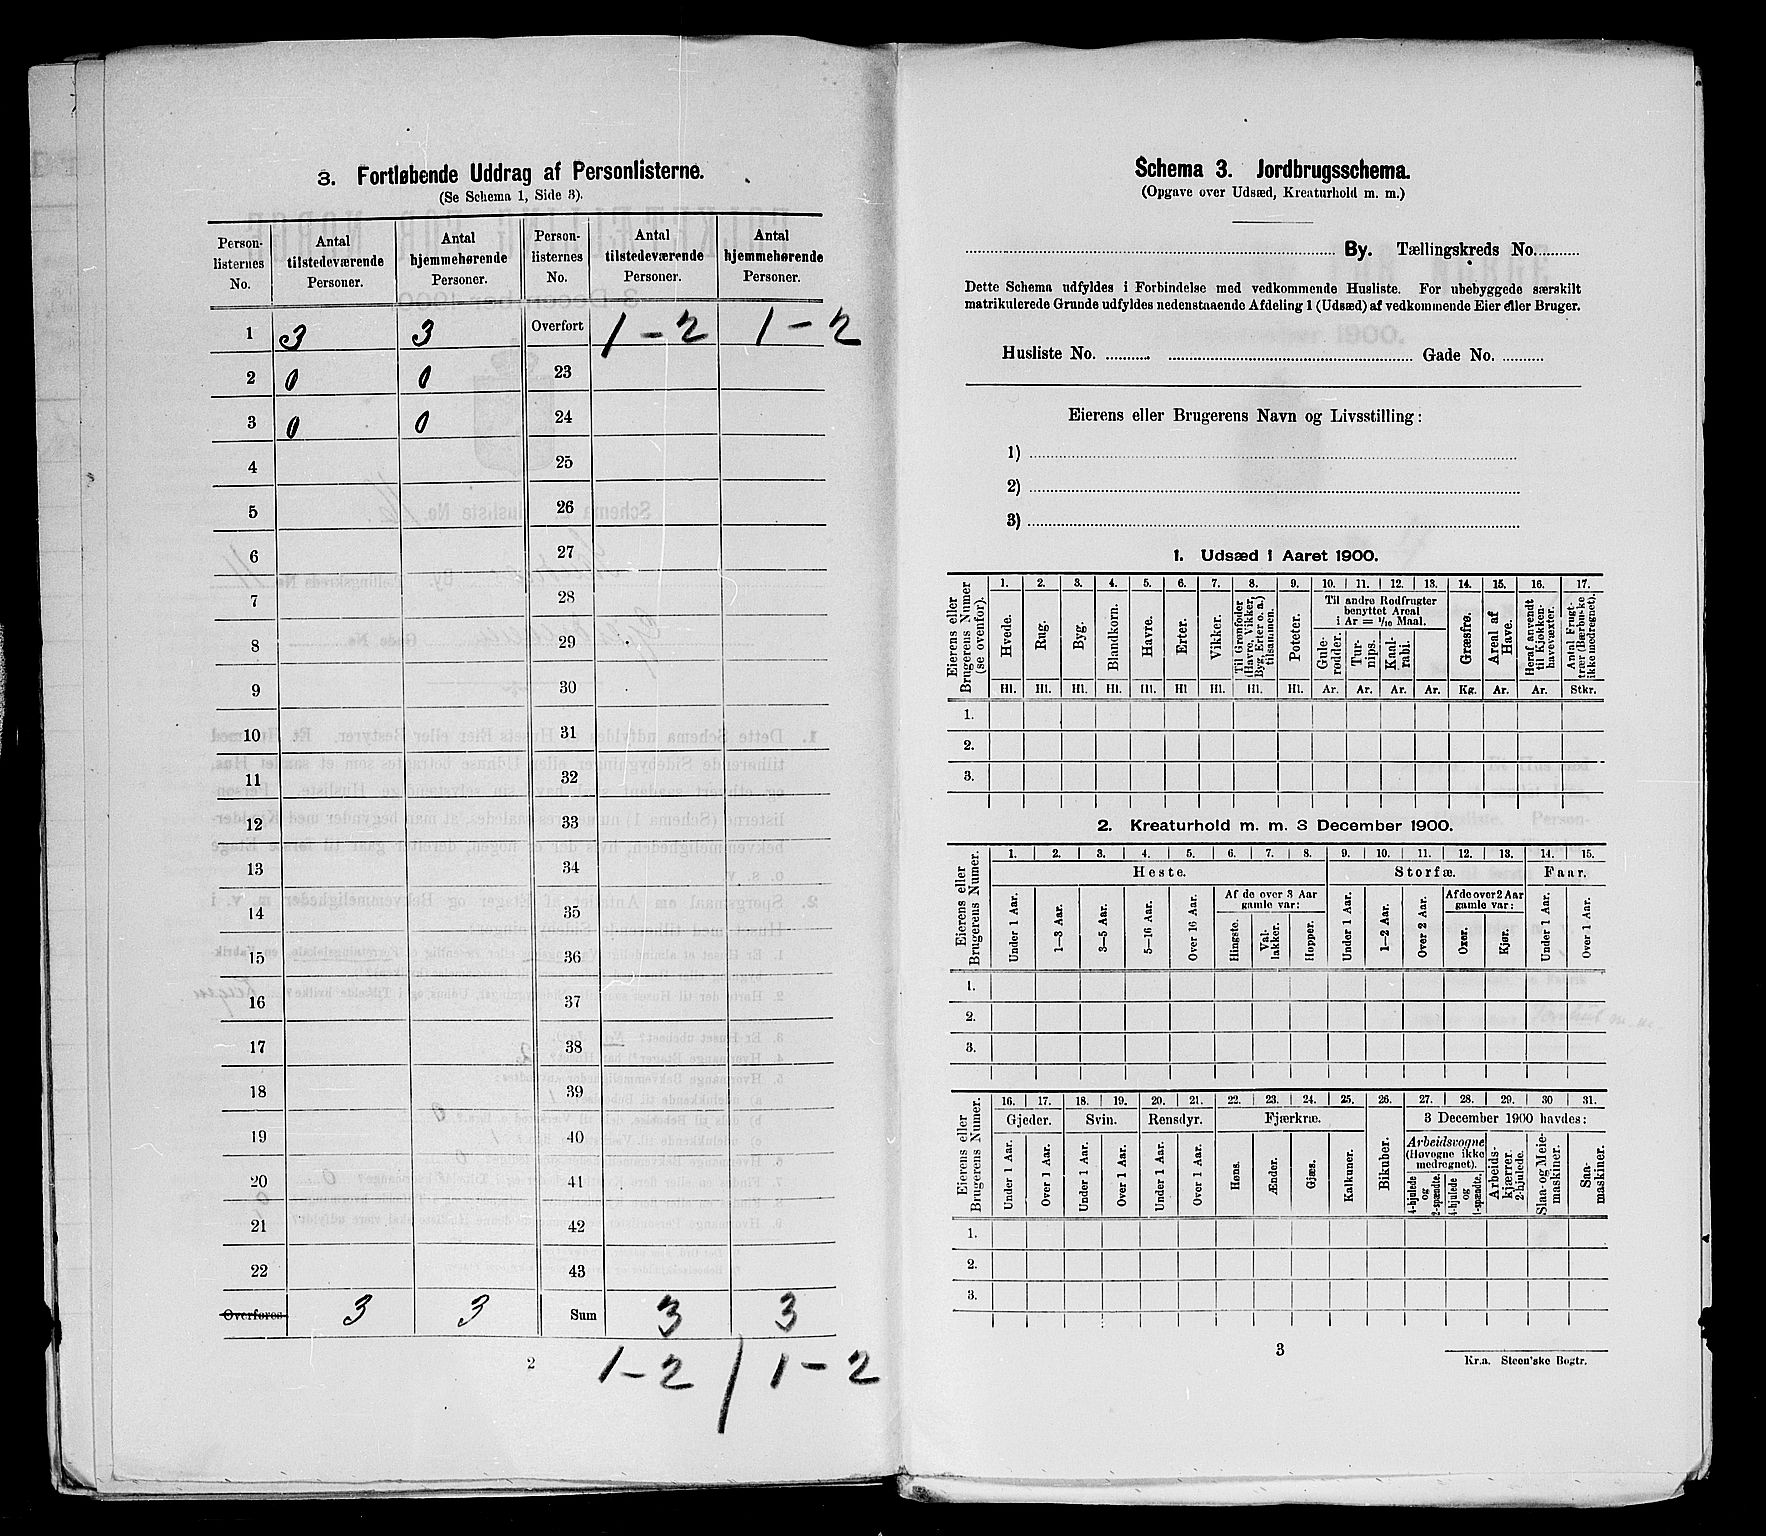 3. Fortløbende Uddrag af Personlisterne.
(Se Schema 1, Side 3).
Person-listernes No. | Antal tilstedeværende Personer. | Antal hjemmehørende Personer. | Person-listernes No. | Antal tilstedeværende Personer. | Antal hjemmehørende Personer.
1 3 3 Overført 1-2 1-2
2 0 0 23
3 0 0 24
4 25
5 26
6 27
7 28
8 29
9 30
10 31
11 32
12 33
13 34
14 35
15 36
16 37
17 38
18 39
19 40
20 41
21 42
22 43
Overføres 3 3 Sum 3 3
2
1-2 / 1-2
Schema 3. Jordbrugsschema.
(Opgave over Udsæd, Kreaturhold m. m.)
By. Tællingskreds No.
Dette Schema udfyldes i Forbindelse med vedkommende Husliste. For ubebyggede særskilt
matrikulerede Grunde udfyldes nedenstaaende Afdeling 1 (Udsæd) af vedkommende Eier eller Bruger.
Husliste No. Gade No.
Eierens eller Brugerens Navn og Livsstilling:
1)
2)
3)
1. Udsæd i Aaret 1900.
Eierens eller Brugerens Numer (se ovenfor).
1. 2. 3. 4. 5. 6. 7. 8. 9. 10. 11. 12. 13. 14. 15. 16. 17.
Hvede. Rug. Byg. Blandkorn. Havre. Erter. Vikker. Til Grønfoder (Havre, Vikker, Byg, Erter o. a.) tilsammen. Poteter.
Til andre Rodfrugter benyttet Areal i Ar = 1/10 Maal.
Gule-rødder. Tur-nips. Kaal-rabi.
Græsfrø. Areal af Have. Heraf anvendt til Kjøkken-havevæxter. Antal Frugt-trær (Bærbuske ikke medregnet).
Hl. Hl. Hl. Hl. Hl. Hl Hl. Hl. Hl. Ar. Ar. Ar. Ar. Kg. Ar. Ar. Stkr.
1.
2.
3.
2. Kreaturhold m. m. 3 December 1900.
Eierens eller Brugerens Numer.
1. 2. 3. 4. 5. 6. 7. 8. 9. 10. 11. 12. 13. 14. 15.
Heste. Storfæ. Faar.
Under 1 Aar. 1—3 Aar. 3—5 Aar. 5—16 Aar. Over 16 Aar.
Af de over 3 Aar gamle var:
Hingste. Val-lakker. Hopper.
Under 1 Aar. 1—2 Aar. Over 2 Aar.
Af de over 2 Aar gamle var:
Oxer. Kjør.
Under 1 Aar. Over 1 Aar.
1.
2.
3.
Eierens eller Brugerens Numer.
16. 17. 18. 19. 20. 21. 22. 23. 24. 25. 26. 27. 28. 29. 30 31.
Gjeder. Svin. Rensdyr. Fjærkræ. 3 December 1900 havdes:
Under 1 Aar. Over 1 Aar. Under 1 Aar. Over 1 Aar. Under 1 Aar. Over 1 Aar.
Høns. Ænder. Gjæs. Kalkuner. Bikuber.
Arbeidsvogne (Høvogne ikke medregnet).
4-hjulede og 2-spændte. 4-hjulede og 1-spændte.
Arbeids-kjærrer, 2-hjulede. Slaa- og Meie-maskiner. Saa-maskiner.
1.
2.
3.
3
Kr.a. Steen'ske Bogtr.